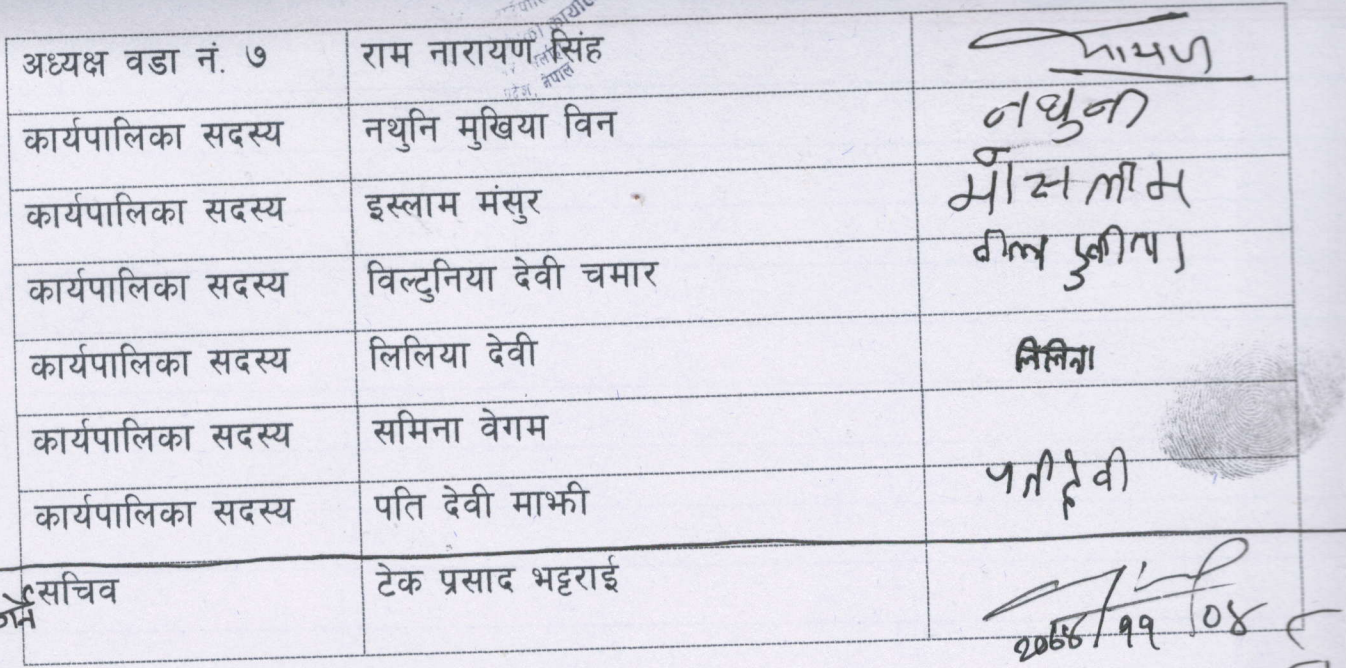 कार्यालय
नेपाल
अध्यक्ष वडा नं. ७ राम नारायण सिंह
कार्यपालिका सदस्य नथुनि मुखिया विन नथुनी
कार्यपालिका सदस्य इस्लाम मंसुर
कार्यपालिका सदस्य विल्टुनिया देवी चमार
कार्यपालिका सदस्य लिलिया देवी
कार्यपालिका सदस्य समिना वेगम
कार्यपालिका सदस्य पति देवी माझी पतीदेवी
सचिव टेक प्रसाद भट्टराई